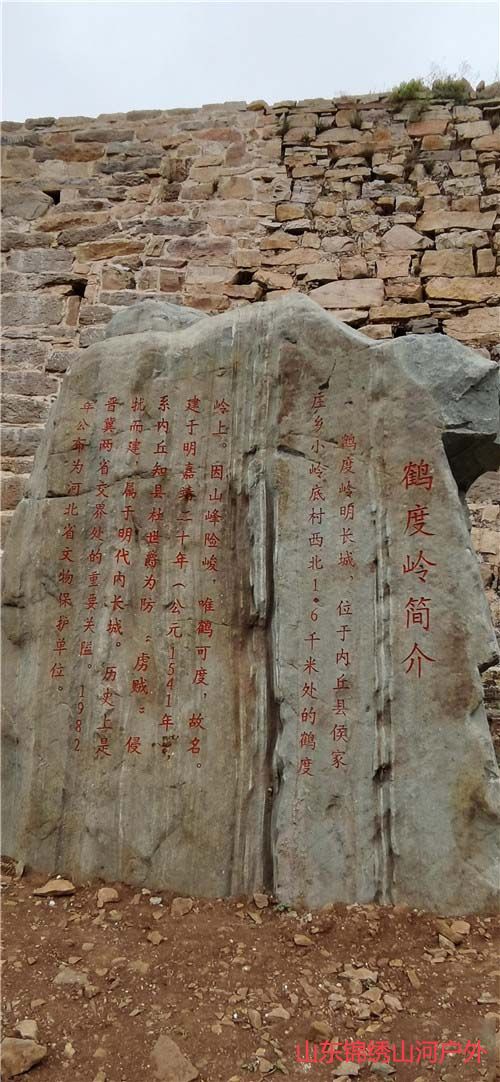 鹤度岭简介
鹤度岭明长城，位于内丘县侯家
庄乡小岭底村西北1.6千米处的鹤度
岭上。因山峰险峻，唯鹤可度，故名。
建于明嘉靖二十年（公元1541年），
系内丘知县杜世爵为防“虏贼”侵
扰而建，属于明代内长城。历史上是
晋冀两省交界处的重要关隘。1982
年公布为河北省文物保护单位。
山东锦绣山河户外